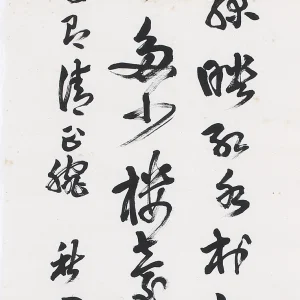 綠映紅水村
多少樓臺
清正 秋